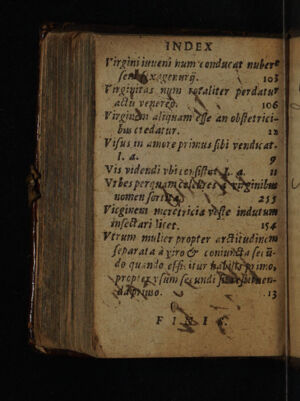 INDEX
Virgini iuveni num conducat nubere
103
Virginitas num totaliter perdatur
actu venereo. 106
Virginem aliquam esse an obstetrici-
bus credatur. 12
Visus in amore primus sibi vendicat.
l. a. 9
Vis videndi vbi consistat l. a. 11
Vrbes perquam celebres à virginibus
nomen sortitæ. 255
Virginem meretricia veste indutum
insectari licet. 154
Vtrum mulier propter arctitudinem
separata à viro & coniuncta secū-
do quando efficitur habilis primo,
propter vsum secundi sit
primo. 13
FINIS.